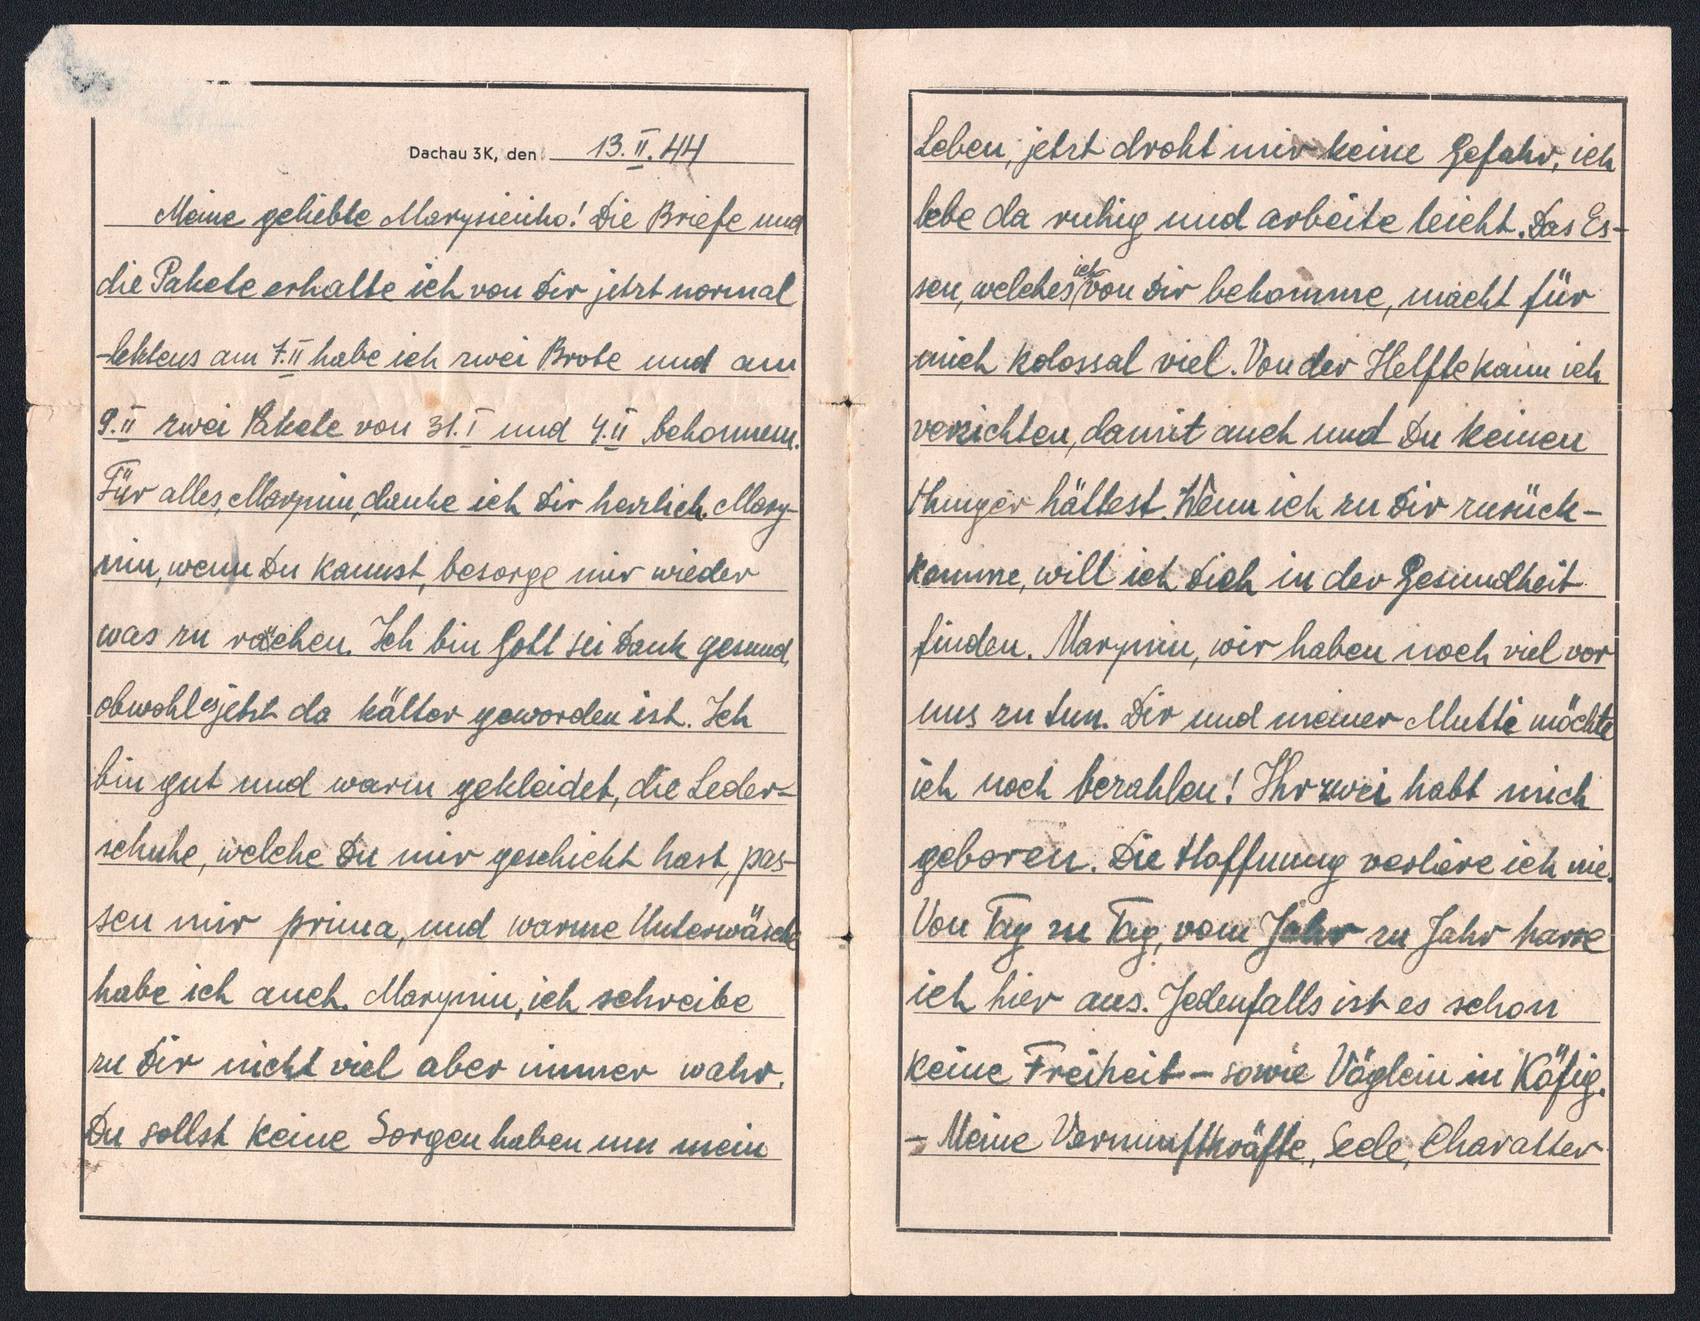 Dachau 3K, den 13.II.44
Meine geliebte Marysieńko! Die Briefe und
die Pakete erhalte ich von Dir jetzt normal
-letztens am 7.II habe ich zwei Brote und am
9.II zwei Pakete von 31.I und 4.II bekommen.
Für alles, Marymin, danke ich Dir herzlich. Mary-
min, wenn Du kannst, besorge mir wieder
was zu rauchen. Ich bin Gott sei Dank gesund,
obwohl es jetzt da kälter geworden ist. Ich
bin gut und warm gekleidet, die Leder-
schuhe, welche Du mir geschickt hast, pas-
sen mir prima, und warme Unterwäsche
habe ich auch. Marymin, ich schreibe
zu Dir nicht viel aber immer wahr.
Du sollst keine Sorgen haben um mein
Leben, jetzt droht mir keine Gefahr, ich
lebe da ruhig und arbeite leicht. Das Es-
sen, welches ich von Dir bekomme, macht für
mich kolossal viel. Von der Helfte kann ich
verzichten, damit auch und Du keinen
Hunger hättest. Wenn ich zu Dir zurück-
komme, will ich Dich in der Gesundheit
finden. Marymin, wir haben noch viel vor
uns zu tun. Dir und meiner Mutti möchte
ich noch bezahlen! Ihr zwei habt mich
geboren. Die Hoffnung verliere ich nie.
Von Tag zu Tag, vom Jahr zu Jahr harre
ich hier aus. Jedenfalls ist es schon
keine Freiheit – sowie Vöglein in Käfig.
– Meine Vernunftkräfte, Seele, Charakter